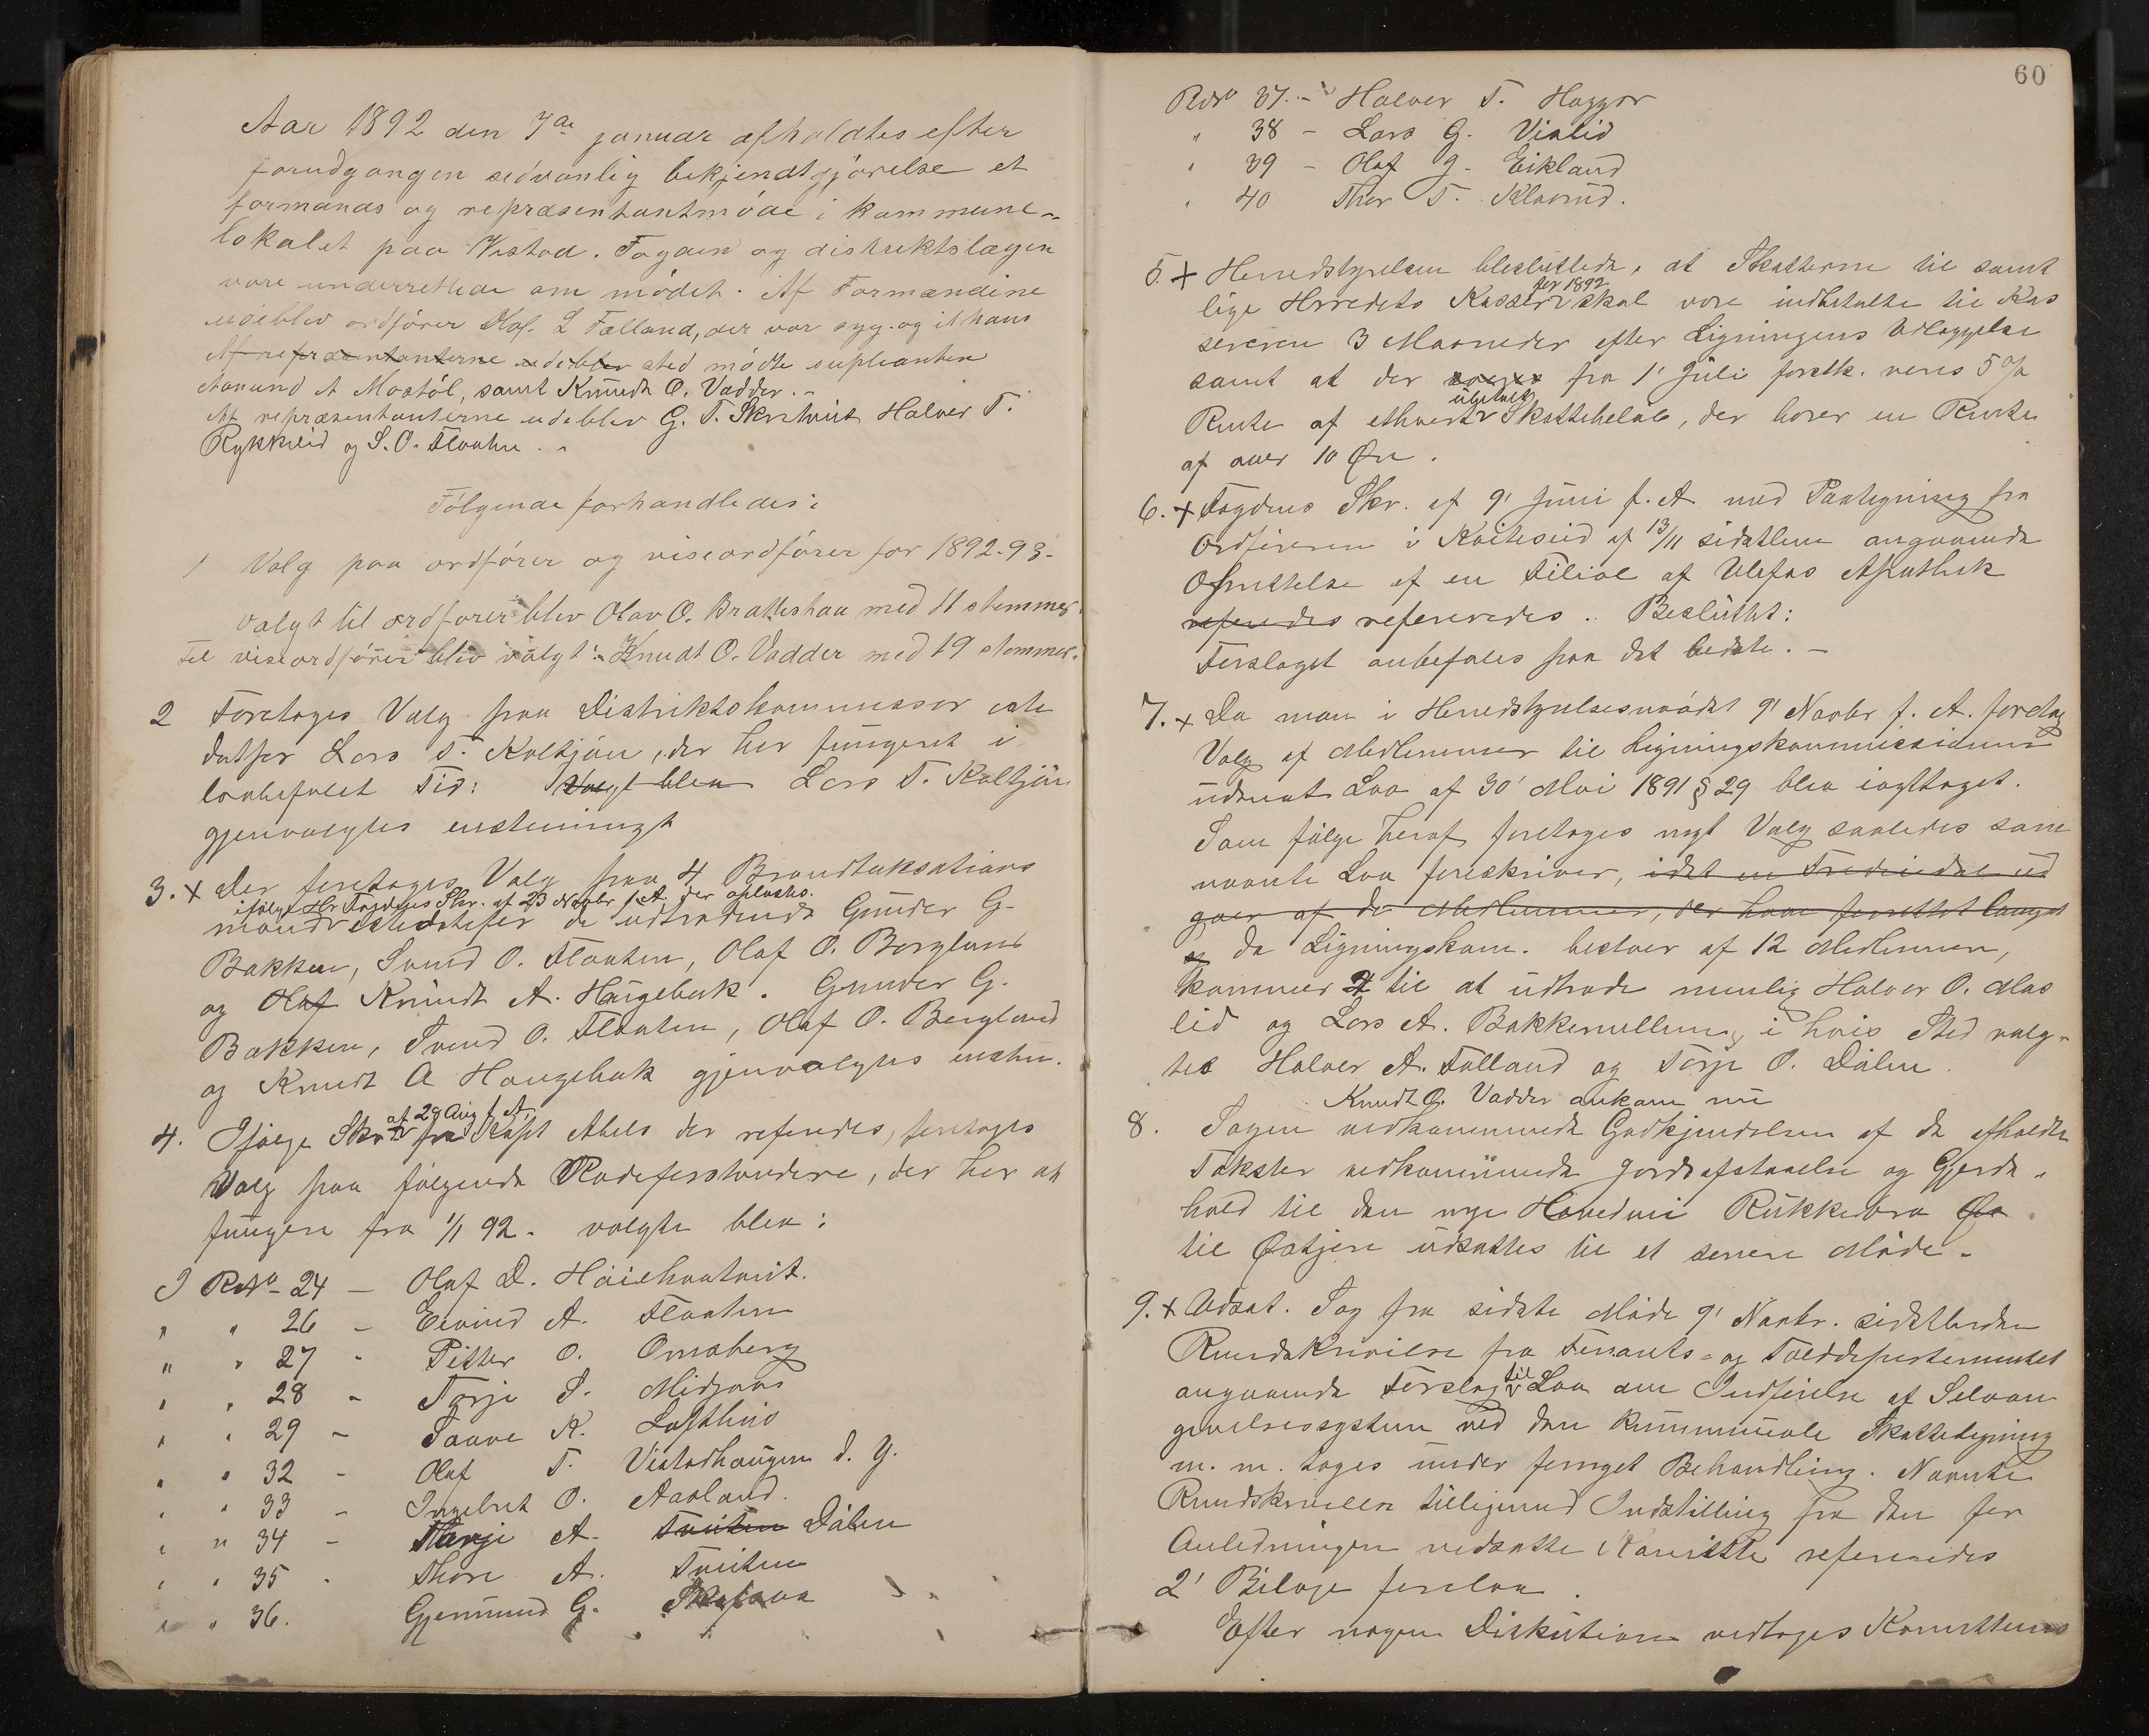 Aar 1892 den 7de januar afholdtes efter
forudgangen sedvanlig bekjendtgjörelse et
formands og repræsentantmöde i kommune-
lokalet paa Kistad. Fogden og distriktslægen
vare underrettede om mödet. Af Formændene
udeblev ordförer Olaf L Falland, der var syg. og it hans
Af repræsentanterne udeblev sted mödte supleanten
Aanund A Mostöl, samt Knudt O. Vadder.
Af repræsentanterne udeblev G. T. Skretveit Halvor T.
Rykkelid og S. O. Flaaten.
Fölgende forhandledes:
1 Valg paa ordförer og viseordförer for 1892-93.
valgt til ordförer blev Olav O. Bratteshaa med 11 stemmer.
Til viseordförer blev valgt: Knudt O. Vadder med 19 stemmer.
2 Foretoges Valg paa Distriktskommissær iste
detfor Lars T. Kaltjön, der har fungeret i
lovbefalet Tid: Valgt blev Lars T. Kaltjön
gjenvalgtes enstemmigt
3. x Der foretoges Valg paa 4 Brandtaksations
ifølge Hr Fogdens Skr. af 23 Novbr f. A. der oplæstes.
mænd istedetfor de udtrædende Gunder G.
Bakken, Svend O. Flaaten, Olaf O. Bergland
og Olaf Knudt A. Haugebak. Gunder G.
Bakken, Svend O. Flaaten, Olaf O. Bergland
og Knudt A Haugebak gjenvalgtes enstem.
af 29 Aug f. A.
4. Ifölge Skr fra Kapt Abels der referedes, foretoges
Valg paa fölgende Rodeforstandere, der har at
fungere fra 1/1 92. valgte blev:
I Rode No 24 - Olaf D. Höiehaatveit.
" " 26 - Eivind A. Flaaten
" " 27 - Pitter O. Omsberg
" " 28 - Torje S. Midgaas
" " 29 - Saave K. Lofthus
" " 32 - Olaf T. Vistadhaugen d. y.
" " 33 - Ingebret O. Aarland.
" " 34 - Tarje A. Tveiten Dålen
" " 35 - Thore A. Tveiten
" " 36. Gjermund G. Skafsaa
60
Rode No 37. - Halvor T. Haggor
" 38 - Lars G. Vialid
" 39 - Olaf G. Eikland
" 40 Thor T. Klovrud.
5. x Herredstyrelsen besluttede, at Skatterne til samt
for 1892
lige Herredets Kasser skal være indbetalte til Kas
sereren 3 Maaneder efter Ligningens Udlæggelse
samt at der svares fra 1' Juli førstk. renes 5 %
ubetalt
Rente af ethvert Skattebelöb, der bærer en Rente
af over 10 Øre.
6. x Fogdens Skr. af 9' Juni f. A. med Paategning fra
Ordføreren i Kviteseid af 13/11 sidstleden angaaende
Oprettelse af en Filial af Ulefos Apothek
referedes refereredes. Besluttet:
Forslaget anbefales paa det bedste. -
7. x Da man i Herredstyrelsesmödet 9' Novbr f. A. foretog
Valg af Medlemmer til Ligningskommissionen
uden at Lov af 30' Mai 1891 § 29 blev iagttaget.
Som fölge heraf foretoges nyt Valg saaledes som
nævnte Lov foreskriver, idet en Trediedel ud
gaar af de Medlemmer, der have forrettet længst
og da Ligningskom. bestaar af 12 Medlemmer,
kommer 2 til at udtræde nemlig Halvor O. Mas
lid og Lars A. Bakkemellem, i hvis Sted valg-
tes Halvor A. Falland og Torje O. Dålen.
Knudt O. Vadder ankom nu
8. Sagen vedkommende Godkjendelsen af de afholdte
Takster vedkommende Jordafstaaelse og Gjerde-
hold til den nye Hovedvei Rukkebra Øs
til Østjern udsattes til et senere Möde.
9. x Udsat. Sag fra sidste Möde 9' Novbr. sidstleden
Rundskrivelse fra Finants- og Tolddepartementet
til
angaaende Forslag Lov om Indførelse af Selvan
givelsessystem ved den kommunale Skatteligning
m. m. toges under fornyet Behandling. Nævnte
Rundskrivelse tilligemed Indstilling fra den for
Anledningen nedsatte Komitte refereredes
2' Bilage forelaa.
Efter nogen Diskution vedtoges Komitteens